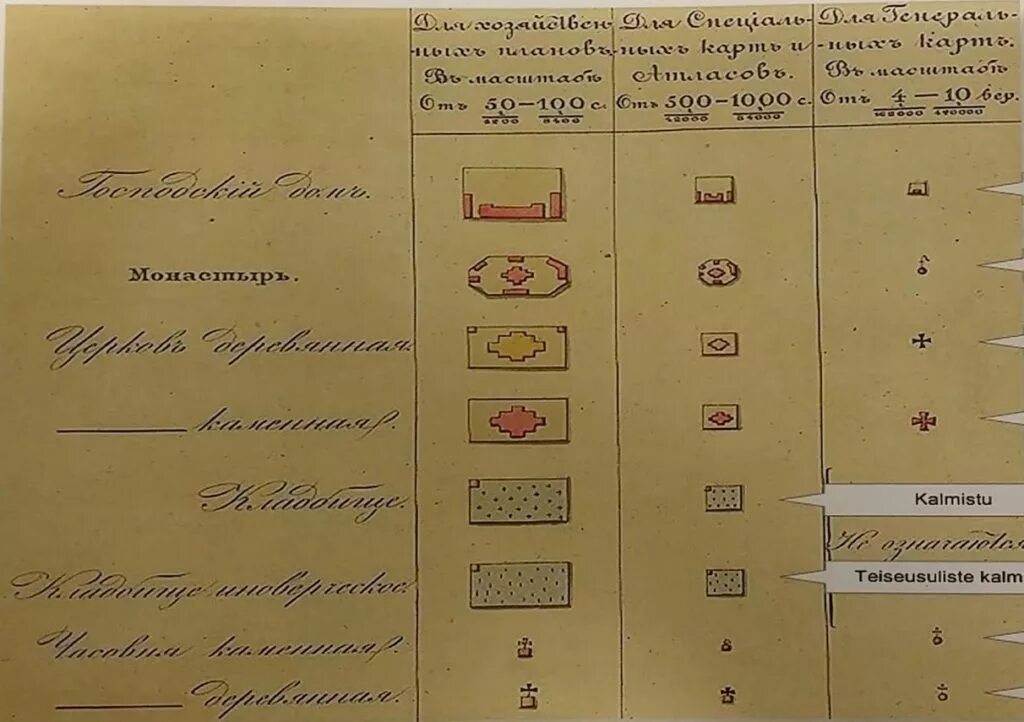 Для хозяйствен-
ныхъ плановъ.
Въ масштабѣ
Отъ 50—100 с.
4200 8400
Для Спеціаль-
ныхъ картъ и
Атласовъ.
Отъ 500—1000 с.
42000 84000
Для Генераль-
ныхъ картъ.
Въ масштабѣ
Отъ 4—10 вер.
168000 420000
Господскій домъ.
Монастырь.
Церковь деревянная.
каменная.
Кладбище.
Kalmistu
Не означаются
Кладбище иноверческое.
Teiseusuliste kalm
Часовня каменная.
деревянная.